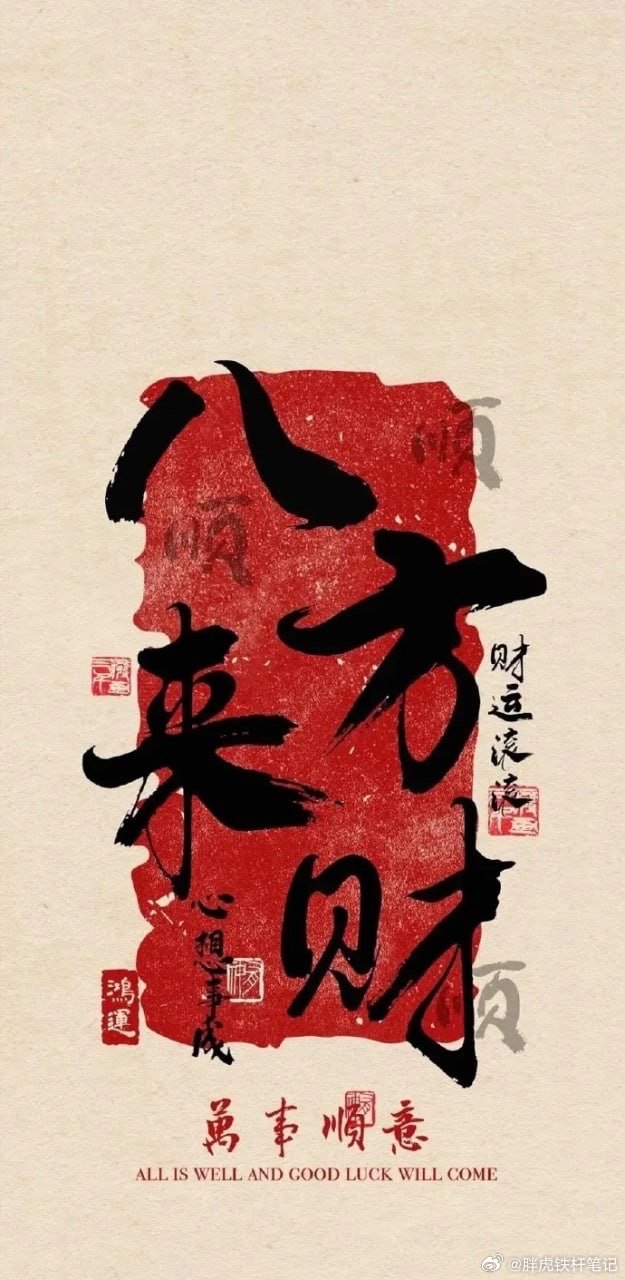 八方来财
顺
顺
财运滚滚
心想事成
鴻運
顺
萬事順意
ALL IS WELL AND GOOD LUCK WILL COME
@胖虎铁杆笔记